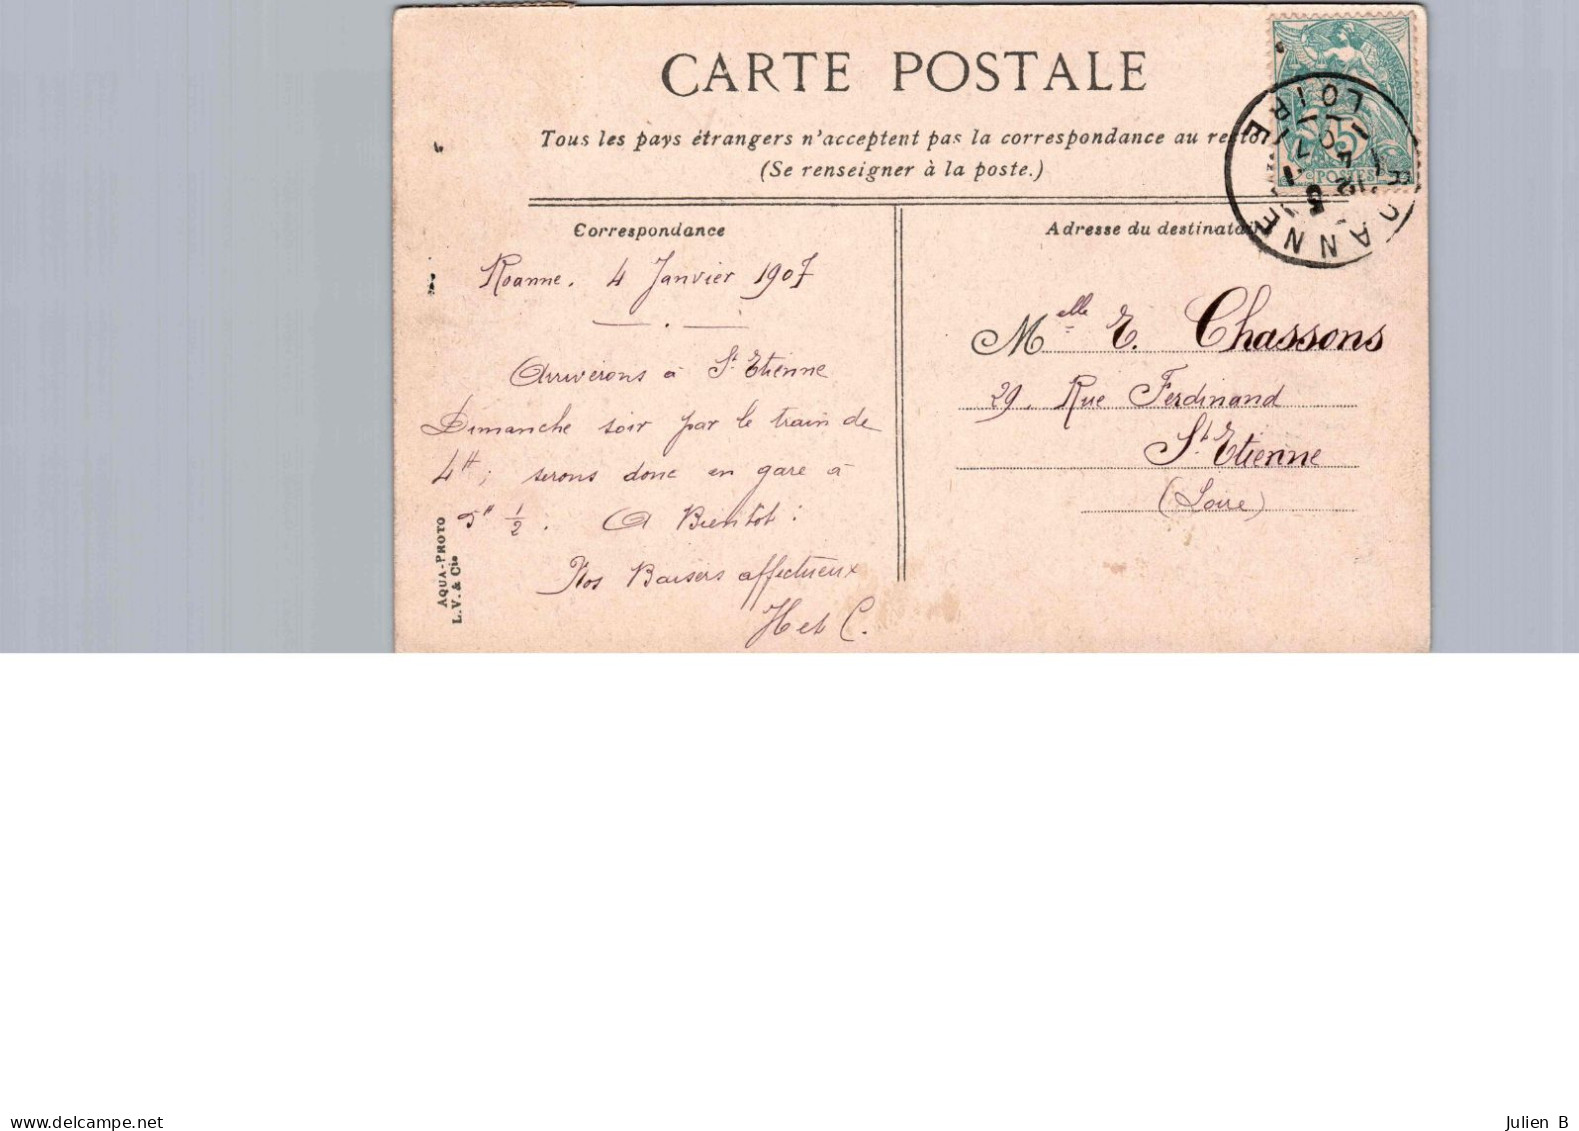 CARTE POSTALE
Tous les pays étrangers n'acceptent pas la correspondance au recto.
(Se renseigner à la poste.)
Correspondance
Roanne. 4 Janvier 1907
Arriverons à St. Etienne
Dimanche soir par le train de
4H; serons donc en gare à
5H 1/2. A Bientot:
Nos Baisers affectueux
H et C.
AQUA-PHOTO
L.V. & Cie
Adresse du destinatai
Melle E. Chassons
29, Rue Ferdinand
St. Etienne
(Loire)
5
POSTES
ROANNE
LOIRE
12
4 - 1
07
delcampe.net
Julien B